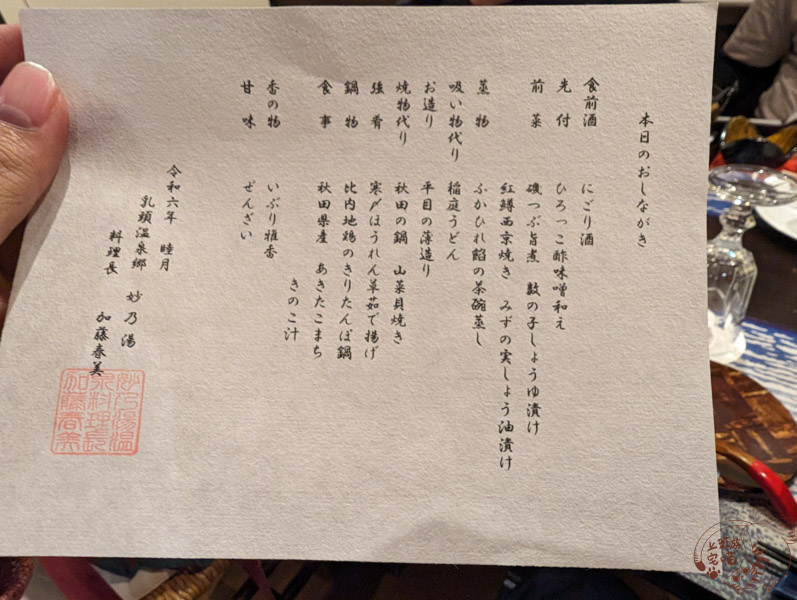 本日のおしながき
食前酒　にごり酒
先付　ひろっこ酢味噌和え
前菜　磯つぶ旨煮　数の子しょうゆ漬け
紅鱒西京焼き　みずの実しょう油漬け
蒸物　ふかひれ餡の茶碗蒸し
吸い物代り　稲庭うどん
お造り　平目の薄造り
焼物代り　秋田の鍋　山菜貝焼き
強肴　寒〆ほうれん草茹で揚げ
鍋物　比内地鶏のきりたんぽ鍋
食事　秋田県産　あきたこまち
きのこ汁
香の物　いぶり雅香
甘味　ぜんざい
令和六年　睦月
乳頭温泉郷　妙乃湯
料理長　加藤春美
妙乃湯温
泉料理長
加藤春美